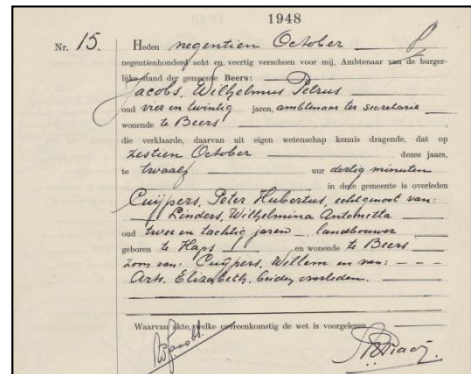 1948
Nr. 15. Heden negentien October
negentienhonderd acht en veertig verscheen voor mij, Ambtenaar van de burger-
lijke stand der gemeente Beers:
Jacobs, Wilhelmus Petrus
oud vier en twintig jaren, ambtenaar ter secretarie
wonende te Beers
die verklaarde, daarvan uit eigen wetenschap kennis dragende, dat op
zestien October dezes jaars,
te twaalf uur dertig minuten
in deze gemeente is overleden
Cuijpers, Peter Hubertus, echtgenoot van:
Linders, Wilhelmina Antonetta
oud twee en tachtig jaren landbouwer
geboren te Haps en wonende te Beers
zoon van: Cuijpers, Willem en van: - - -
Arts, Elizabeth, beiden overleden.
Waarvan akte, welke overeenkomstig de wet is voorgelezen
Jacobs.